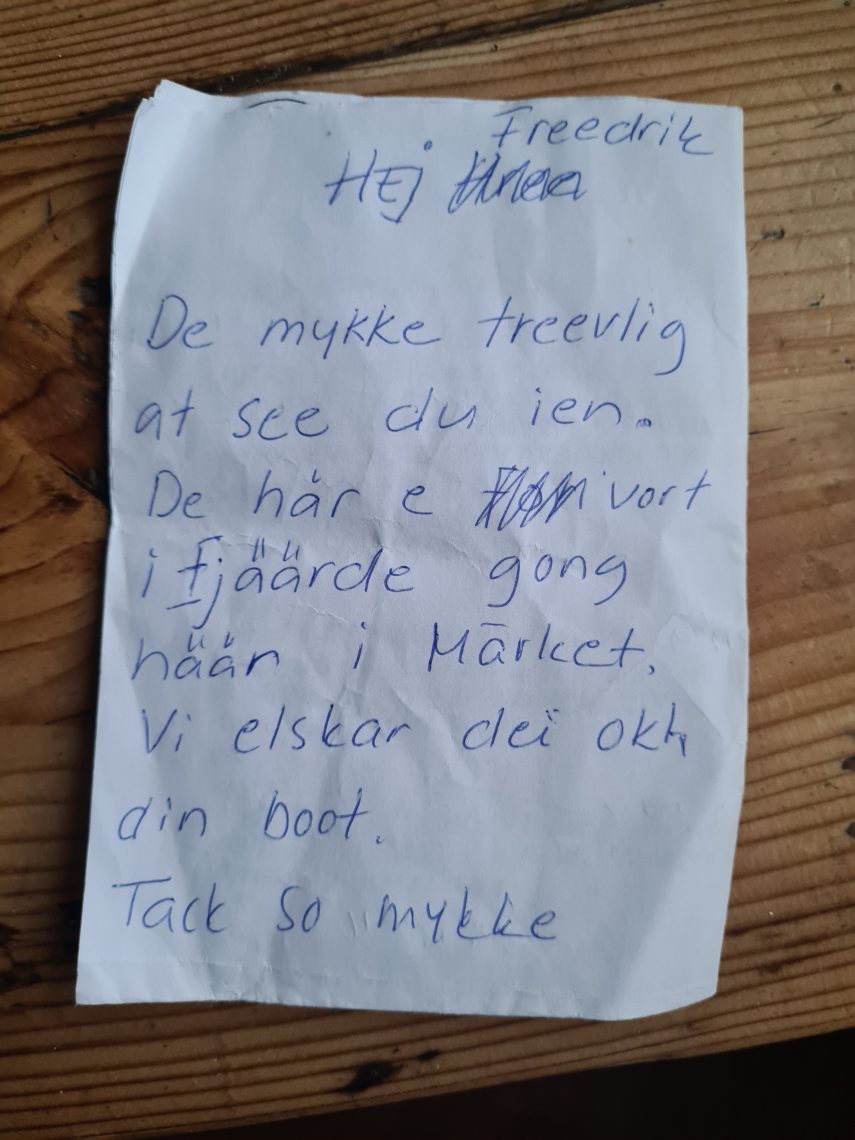 Freedrik
Hej
De mykke treevlig
at see du ien.
De här e vort
i fjäärde gong
häär i Märket.
Vi elskar dei okh
din boot.
Tack so mykke